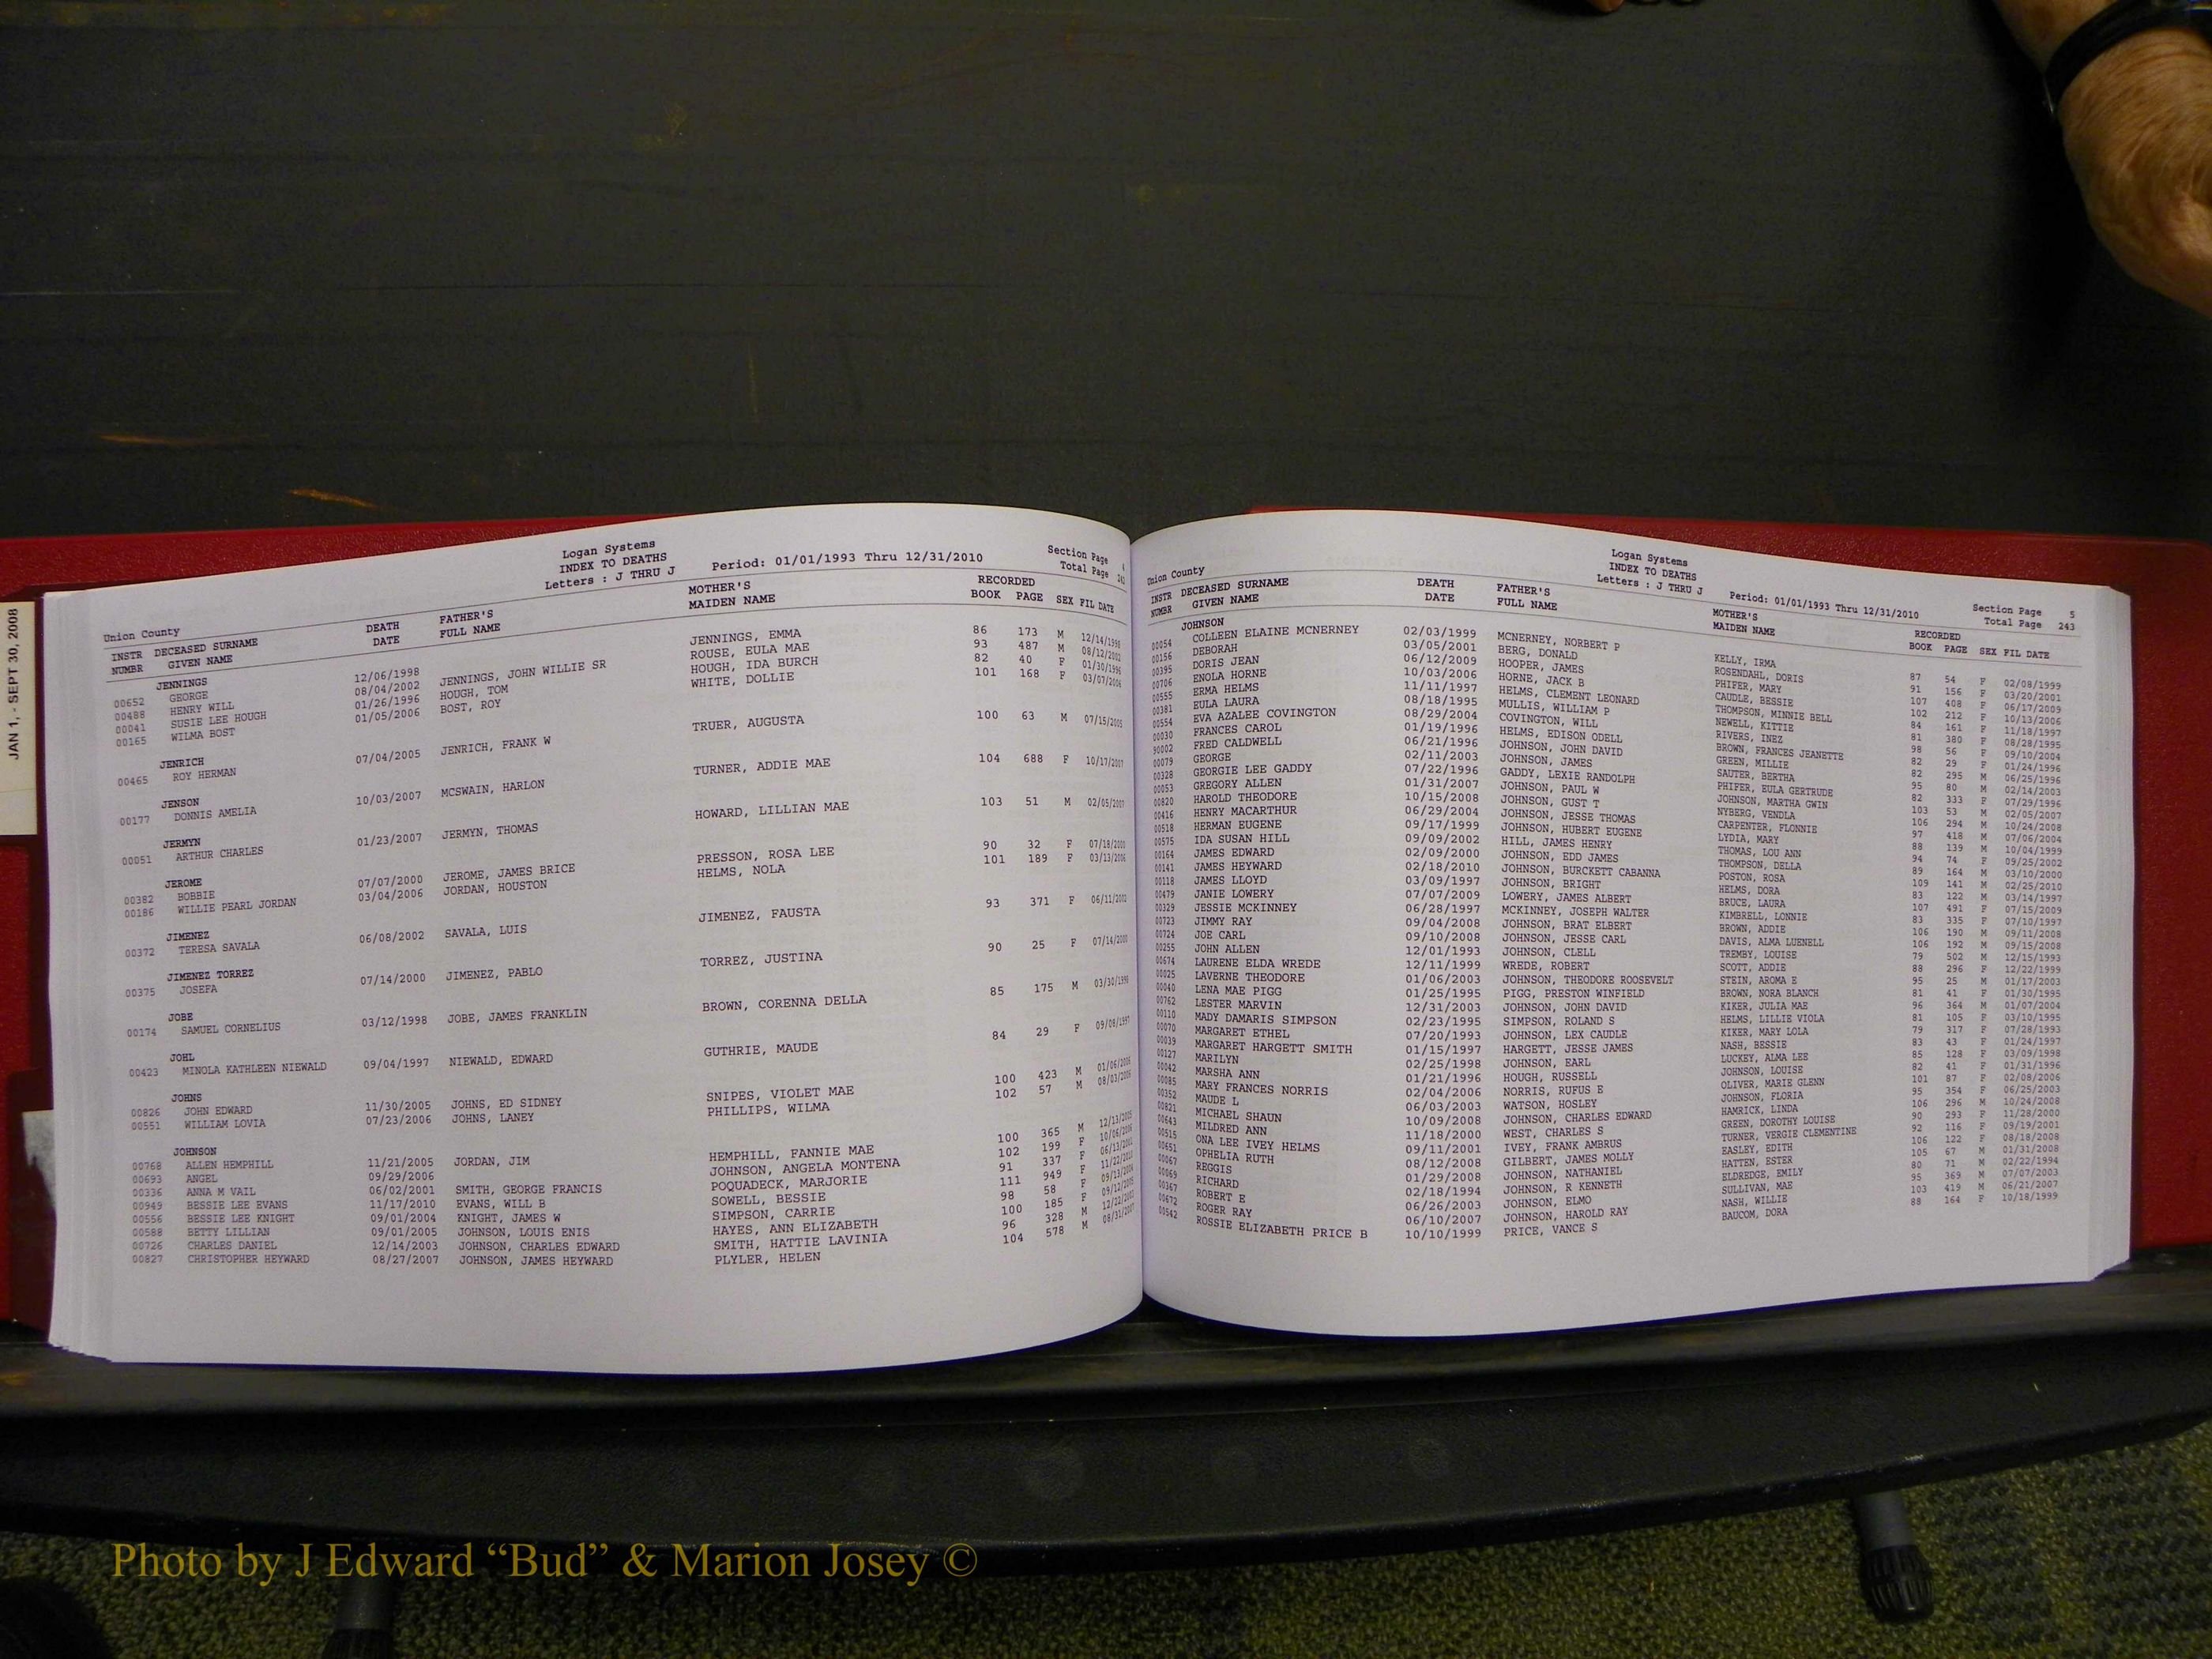 JAN 1, - SEPT 30, 2008
Logan Systems
INDEX TO DEATHS
Letters : J THRU J Period: 01/01/1993 Thru 12/31/2010
Section Page 4
Total Page 242
Union County
INSTR DECEASED SURNAME DEATH FATHER'S MOTHER'S RECORDED
NUMBR GIVEN NAME DATE FULL NAME MAIDEN NAME BOOK PAGE SEX FIL DATE
JENNINGS
00652 GEORGE 12/06/1998 JENNINGS, JOHN WILLIE SR JENNINGS, EMMA 86 173 M 12/14/1998
00488 HENRY WILL 08/04/2002 ROUSE, EULA MAE 93 487 M 08/12/2002
00041 SUSIE LEE HOUGH 01/26/1996 HOUGH, TOM HOUGH, IDA BURCH 82 40 F 01/30/1996
00165 WILMA BOST 01/05/2006 BOST, ROY WHITE, DOLLIE 101 168 F 03/07/2006
JENRICH
00465 ROY HERMAN 07/04/2005 JENRICH, FRANK W TRUER, AUGUSTA 100 63 M 07/15/2005
JENSON
00177 DONNIS AMELIA 10/03/2007 MCSWAIN, HARLON TURNER, ADDIE MAE 104 688 F 10/17/2007
JERMYN
00051 ARTHUR CHARLES 01/23/2007 JERMYN, THOMAS HOWARD, LILLIAN MAE 103 51 M 02/05/2007
JEROME
00382 BOBBIE 07/07/2000 JEROME, JAMES BRICE PRESSON, ROSA LEE 90 32 F 07/18/2000
00186 WILLIE PEARL JORDAN 03/04/2006 JORDAN, HOUSTON HELMS, NOLA 101 189 F 03/13/2006
JIMENEZ
00372 TERESA SAVALA 06/08/2002 SAVALA, LUIS JIMENEZ, FAUSTA 93 371 F 06/11/2002
JIMENEZ TORREZ
00375 JOSEFA 07/14/2000 JIMENEZ, PABLO TORREZ, JUSTINA 90 25 F 07/14/2000
JOBE
00174 SAMUEL CORNELIUS 03/12/1998 JOBE, JAMES FRANKLIN BROWN, CORENNA DELLA 85 175 M 03/30/1998
JOHL
00423 MINOLA KATHLEEN NIEWALD 09/04/1997 NIEWALD, EDWARD GUTHRIE, MAUDE 84 29 F 09/08/1997
JOHNS
00826 JOHN EDWARD 11/30/2005 JOHNS, ED SIDNEY SNIPES, VIOLET MAE 100 423 M 01/06/2006
00551 WILLIAM LOVIA 07/23/2006 JOHNS, LANEY PHILLIPS, WILMA 102 57 M 08/03/2006
JOHNSON
00768 ALLEN HEMPHILL 11/21/2005 JORDAN, JIM HEMPHILL, FANNIE MAE 100 365 M 12/13/2005
00693 ANGEL 09/29/2006 JOHNSON, ANGELA MONTENA 102 199 F 10/06/2006
00336 ANNA M VAIL 06/02/2001 SMITH, GEORGE FRANCIS POQUADECK, MARJORIE 91 337 F 06/13/2001
00949 BESSIE LEE EVANS 11/17/2010 EVANS, WILL B SOWELL, BESSIE 111 949 F 11/22/2010
00556 BESSIE LEE KNIGHT 09/01/2004 KNIGHT, JAMES W SIMPSON, CARRIE 98 58 F 09/13/2004
00588 BETTY LILLIAN 09/01/2005 JOHNSON, LOUIS ENIS HAYES, ANN ELIZABETH 100 185 F 09/12/2005
00726 CHARLES DANIEL 12/14/2003 JOHNSON, CHARLES EDWARD SMITH, HATTIE LAVINIA 96 328 M 12/22/2003
00827 CHRISTOPHER HEYWARD 08/27/2007 JOHNSON, JAMES HEYWARD PLYLER, HELEN 104 578 M 08/31/2007
Logan Systems
INDEX TO DEATHS
Letters : J THRU J Period: 01/01/1993 Thru 12/31/2010
Section Page 5
Total Page 243
Union County
INSTR DECEASED SURNAME DEATH FATHER'S MOTHER'S RECORDED
NUMBR GIVEN NAME DATE FULL NAME MAIDEN NAME BOOK PAGE SEX FIL DATE
JOHNSON
00054 COLLEEN ELAINE MCNERNEY 02/03/1999 MCNERNEY, NORBERT P KELLY, IRMA 87 54 F 02/08/1999
00156 DEBORAH 03/05/2001 BERG, DONALD ROSENDAHL, DORIS 91 156 F 03/20/2001
00395 DORIS JEAN 06/12/2009 HOOPER, JAMES PHIFER, MARY 107 408 F 06/17/2009
00706 ENOLA HORNE 10/03/2006 HORNE, JACK B CAUDLE, BESSIE 102 212 F 10/13/2006
00555 ERMA HELMS 11/11/1997 HELMS, CLEMENT LEONARD THOMPSON, MINNIE BELL 84 161 F 11/18/1997
00381 EULA LAURA 08/18/1995 MULLIS, WILLIAM P NEWELL, KITTIE 81 380 F 08/28/1995
00554 EVA AZALEE COVINGTON 08/29/2004 COVINGTON, WILL RIVERS, INEZ 98 56 F 09/10/2004
00030 FRANCES CAROL 01/19/1996 HELMS, EDISON ODELL BROWN, FRANCES JEANETTE 82 29 F 01/24/1996
90002 FRED CALDWELL 06/21/1996 JOHNSON, JOHN DAVID GREEN, MILLIE 82 295 M 06/25/1996
00079 GEORGE 02/11/2003 JOHNSON, JAMES SAUTER, BERTHA 95 80 M 02/14/2003
00328 GEORGIE LEE GADDY 07/22/1996 GADDY, LEXIE RANDOLPH PHIFER, EULA GERTRUDE 82 333 F 07/29/1996
00053 GREGORY ALLEN 01/31/2007 JOHNSON, PAUL W JOHNSON, MARTHA GWIN 103 53 M 02/05/2007
00820 HAROLD THEODORE 10/15/2008 JOHNSON, GUST T NYBERG, VENDLA 106 294 M 10/24/2008
00416 HENRY MACARTHUR 06/29/2004 JOHNSON, JESSE THOMAS CARPENTER, FLONNIE 97 418 M 07/06/2004
00518 HERMAN EUGENE 09/17/1999 JOHNSON, HUBERT EUGENE LYDIA, MARY 88 139 M 10/04/1999
00575 IDA SUSAN HILL 09/09/2002 HILL, JAMES HENRY THOMAS, LOU ANN 94 74 F 09/25/2002
00164 JAMES EDWARD 02/09/2000 JOHNSON, EDD JAMES THOMPSON, DELLA 89 164 M 03/10/2000
00141 JAMES HEYWARD 02/18/2010 JOHNSON, BURCKETT CABANNA POSTON, ROSA 109 141 M 02/25/2010
00118 JAMES LLOYD 03/09/1997 JOHNSON, BRIGHT HELMS, DORA 83 122 M 03/14/1997
00479 JANIE LOWERY 07/07/2009 LOWERY, JAMES ALBERT BRUCE, LAURA 107 491 F 07/15/2009
00329 JESSIE MCKINNEY 06/28/1997 MCKINNEY, JOSEPH WALTER KIMBRELL, LONNIE 83 335 F 07/10/1997
00723 JIMMY RAY 09/04/2008 JOHNSON, BRAT ELBERT BROWN, ADDIE 106 190 M 09/11/2008
00724 JOE CARL 09/10/2008 JOHNSON, JESSE CARL DAVIS, ALMA LUENELL 106 192 M 09/15/2008
00255 JOHN ALLEN 12/01/1993 JOHNSON, CLELL TREMBY, LOUISE 79 502 M 12/15/1993
00674 LAURENE ELDA WREDE 12/11/1999 WREDE, ROBERT SCOTT, ADDIE 88 296 F 12/22/1999
00025 LAVERNE THEODORE 01/06/2003 JOHNSON, THEODORE ROOSEVELT STEIN, AROMA E 95 25 M 01/17/2003
00040 LENA MAE PIGG 01/25/1995 PIGG, PRESTON WINFIELD BROWN, NORA BLANCH 81 41 F 01/30/1995
00762 LESTER MARVIN 12/31/2003 JOHNSON, JOHN DAVID KIKER, JULIA MAE 96 364 M 01/07/2004
00110 MADY DAMARIS SIMPSON 02/23/1995 SIMPSON, ROLAND S HELMS, LILLIE VIOLA 81 105 F 03/10/1995
00070 MARGARET ETHEL 07/20/1993 JOHNSON, LEX CAUDLE KIKER, MARY LOLA 79 317 F 07/28/1993
00039 MARGARET HARGETT SMITH 01/15/1997 HARGETT, JESSE JAMES NASH, BESSIE 83 43 F 01/24/1997
00127 MARILYN 02/25/1998 JOHNSON, EARL LUCKEY, ALMA LEE 85 128 F 03/09/1998
00042 MARSHA ANN 01/21/1996 HOUGH, RUSSELL JOHNSON, LOUISE 82 41 F 01/31/1996
00085 MARY FRANCES NORRIS 02/04/2006 NORRIS, RUFUS E OLIVER, MARIE GLENN 101 87 F 02/08/2006
00352 MAUDE L 06/03/2003 WATSON, HOSLEY JOHNSON, FLORIA 95 354 F 06/25/2003
00821 MICHAEL SHAUN 10/09/2008 JOHNSON, CHARLES EDWARD HAMRICK, LINDA 106 296 M 10/24/2008
00643 MILDRED ANN 11/18/2000 WEST, CHARLES S GREEN, DOROTHY LOUISE 90 293 F 11/28/2000
00515 ONA LEE IVEY HELMS 09/11/2001 IVEY, FRANK AMBRUS TURNER, VERGIE CLEMENTINE 92 116 F 09/19/2001
00651 OPHELIA RUTH 08/12/2008 GILBERT, JAMES MOLLY EASLEY, EDITH 106 122 F 08/18/2008
00067 REGGIS 01/29/2008 JOHNSON, NATHANIEL HATTEN, ESTER 105 67 M 01/31/2008
00069 RICHARD 02/18/1994 JOHNSON, R KENNETH ELDREDGE, EMILY 80 71 M 02/22/1994
00367 ROBERT E 06/26/2003 JOHNSON, ELMO SULLIVAN, MAE 95 369 M 07/07/2003
00672 ROGER RAY 06/10/2007 JOHNSON, HAROLD RAY NASH, WILLIE 103 419 M 06/21/2007
00542 ROSSIE ELIZABETH PRICE B 10/10/1999 PRICE, VANCE S BAUCOM, DORA 88 164 F 10/18/1999
Photo by J Edward “Bud” & Marion Josey ©